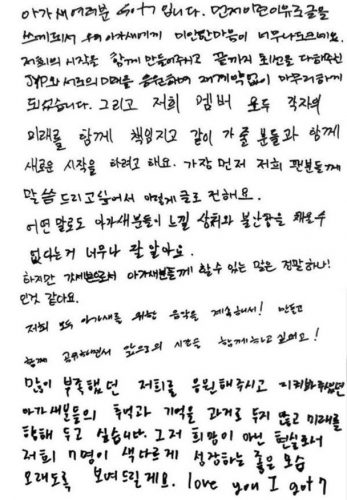 아가새여러분 Got7 입니다. 먼저이런이유로글을
쓰게되서 우리 아가새에게 미안한마음이 너무나도크네요.
저희의 시작을 함께 만들어주시고 끝까지 최선을 다해주신
JYP와 서로의 미래를 응원하며 재계약없이 마무리하게
되었습니다. 그리고 저희 멤버 모두 각자의
미래를 함께 책임지고 같이 가줄 분들과 함께
새로운 시작을 하려고 해요. 가장 먼저 저희 팬분들께
말씀 드리고싶어서 이렇게 글로 전해요.
어떤 말로도 아가새분들이 느낄 상처와 불안감을 채울수
없다는거 너무나 잘 알아요.
하지만 갓세븐으로서 아가새분들께 할수 있는 말은 정말하나!
인것 같다요.
저희 모두 아가새를 위한 음악을 계속해서! 만들고
함께 공유하면서 앞으로의 시간을 함께하고 싶어요!
많이 부족했던 저희를 응원해주시고 지켜봐주셨던
아가새분들의 추억과 기억을 과거로 두지 않고 미래를
향해 두고 싶습니다. 그저 희망이 아닌 현실로서
저희 7명이 색다르게 성장하는 좋은 모습
오래도록 보여드릴게요. love you I got7